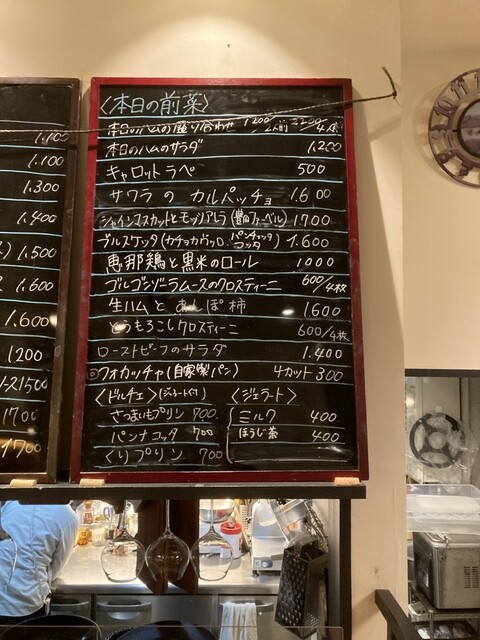 1.100
1.100
1.300
1.400
1.500
1.600
1.600
1200
1500
1700
1700
〈本日の前菜〉
本日のハムの盛り合わせ 1200/2人前 3200/4人前
本日のハムのサラダ 1,200
キャロットラペ 500
サワラの カルパッチョ 1.600
シャインマスカットとモッツアレラ 1700
ブルスケッタ(カチョカヴァロ、パンチェッタ コッタ) 1.600
恵那鶏と黒米のロール 1000
ゴルゴンゾーラムースのクロスティーニ 600/4枚
生ハムと あんぽ柿 1600
とうもろこしクロスティーニ 600/4枚
ローストビーフのサラダ 1.400
フォカッチャ(自家製パン) 4カット300
〈ドルチェ〉(ジェラート付)
さつまいもプリン 700
パンナコッタ 700
くりプリン 700
〈ジェラート〉
ミルク 400
ほうじ茶 400